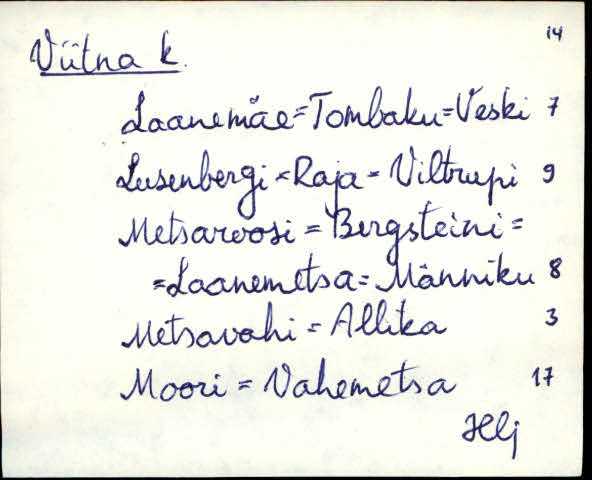 14
Viitna k.
Laanemäe = Tombaku = Veski 7
Lusenbergi = Raja = Viltrupi 9
Metsaroosi = Bergsteini =
= Laanemetsa = Männiku 8
Metsavahi = Allika 3
Moori = Vahemetsa 17
Hlj